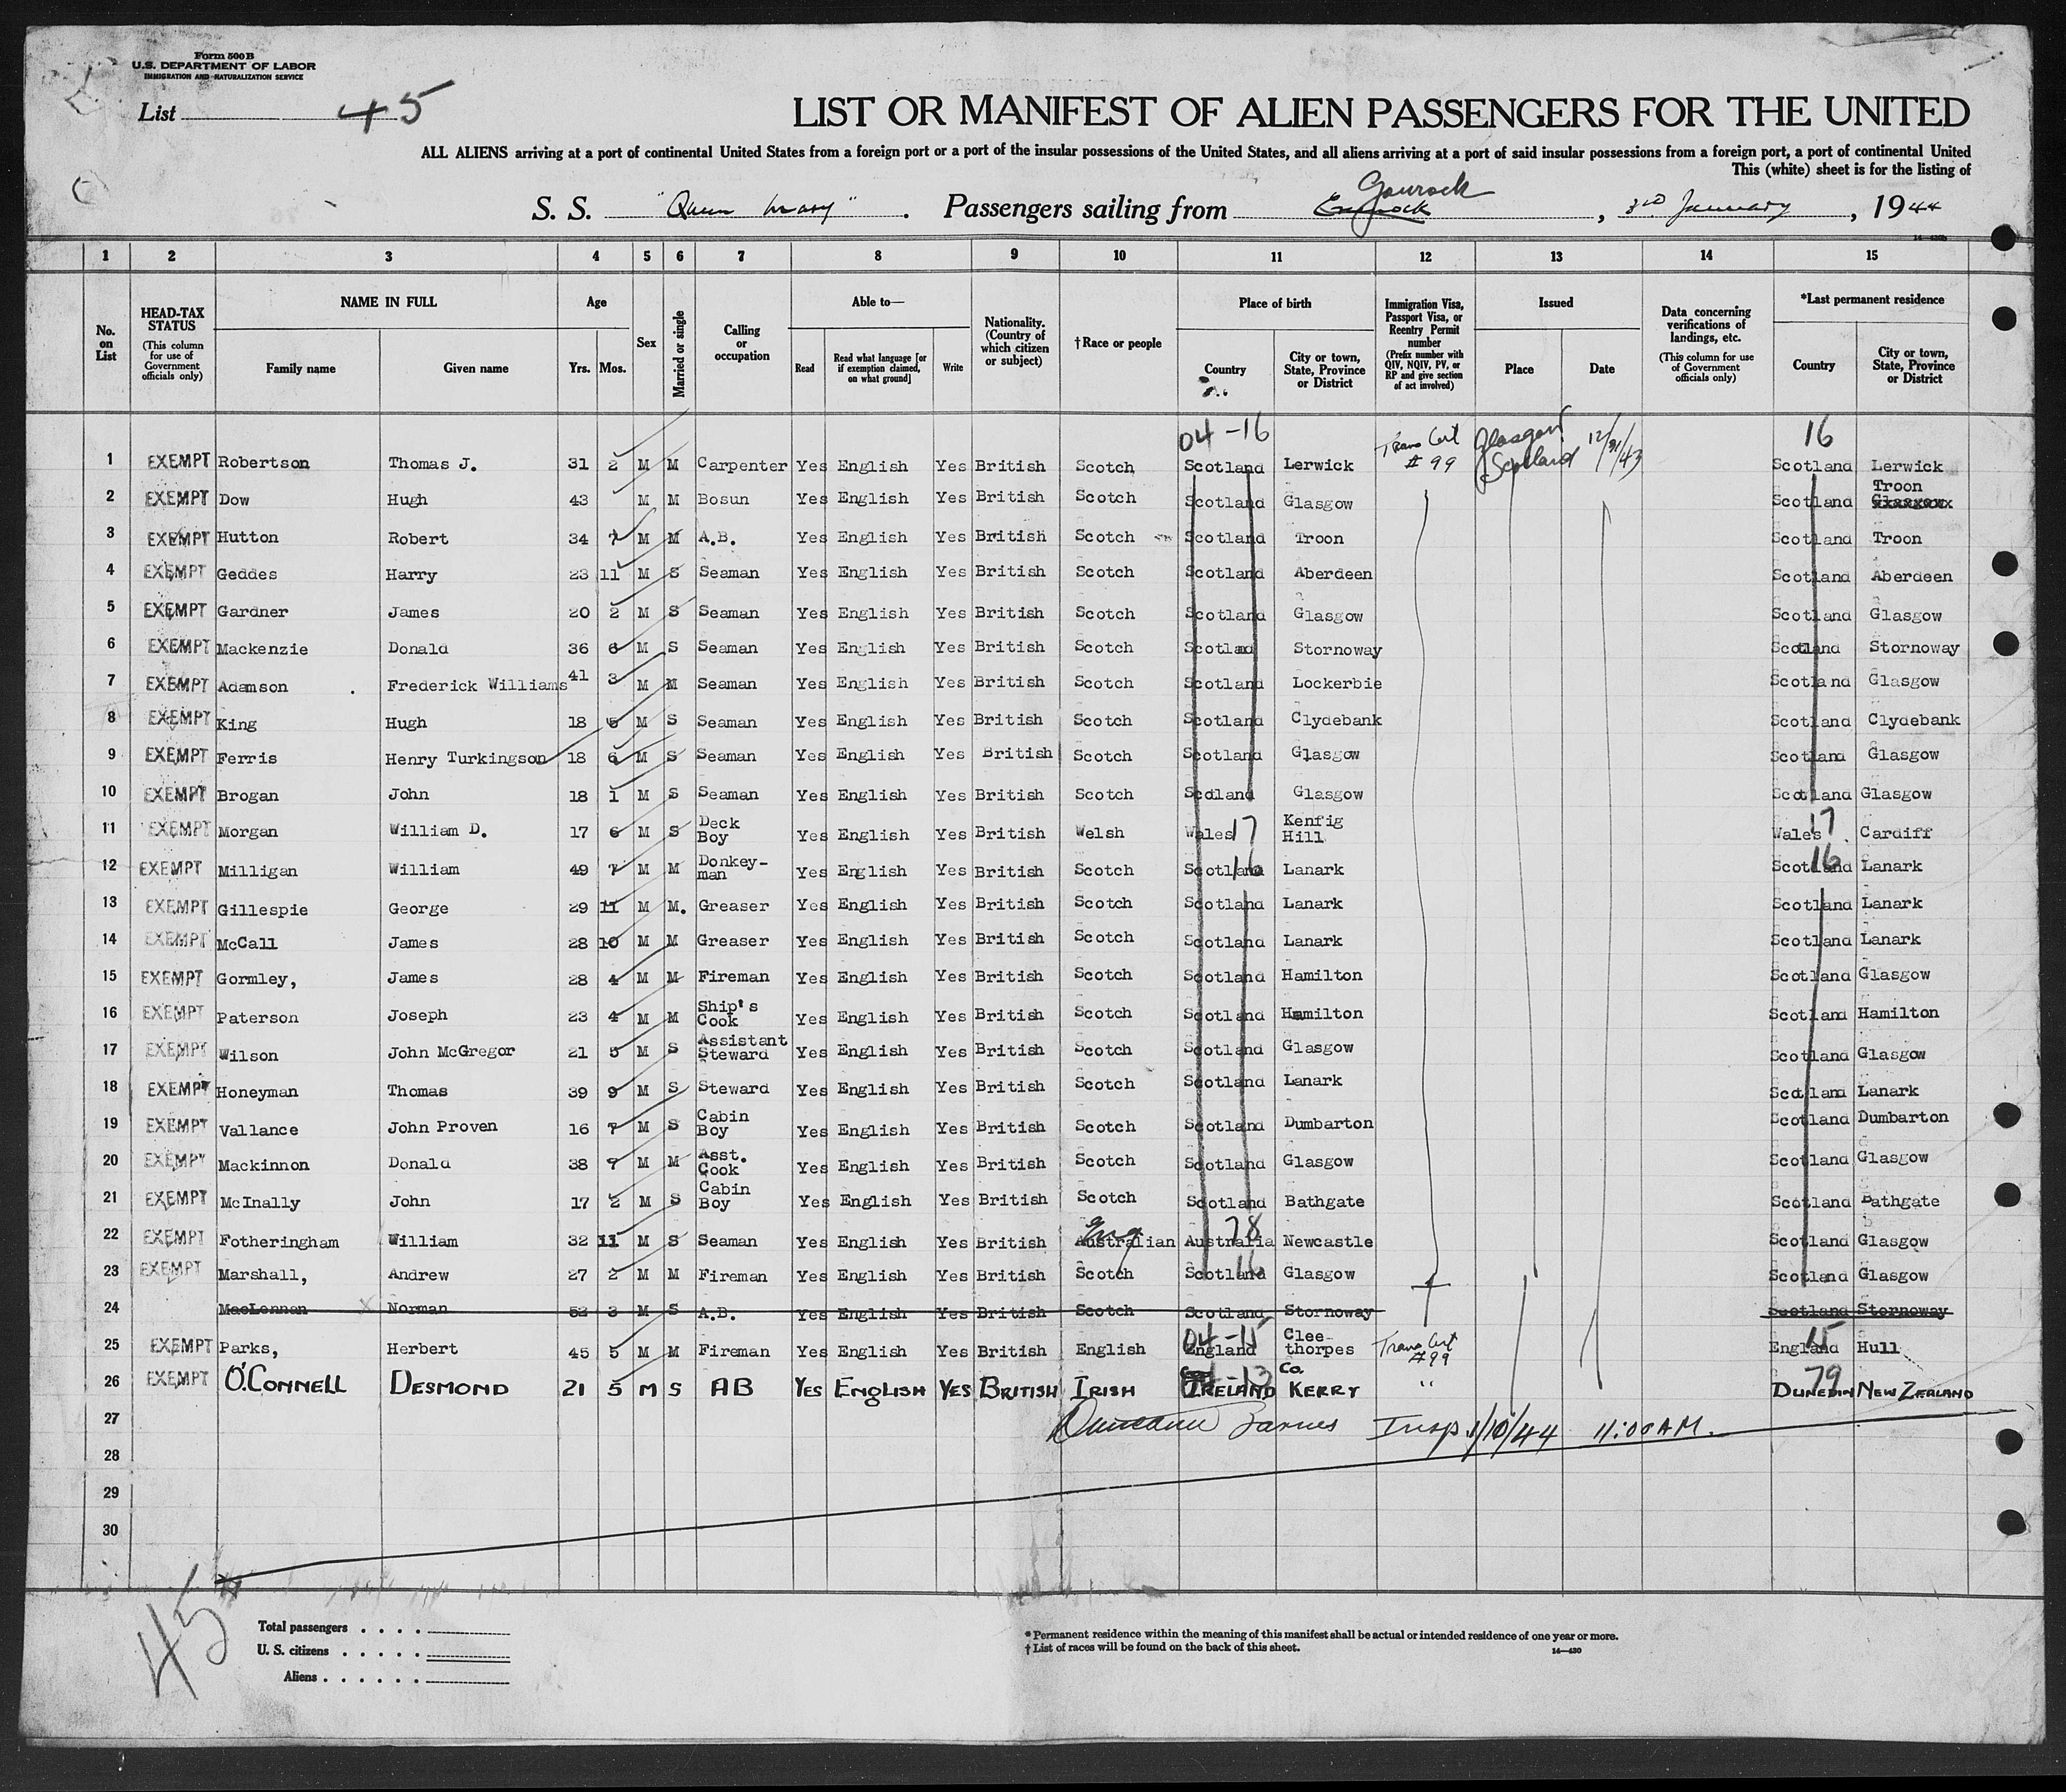 Form 500 B
U.S. DEPARTMENT OF LABOR
IMMIGRATION AND NATURALIZATION SERVICE
List 45
LIST OR MANIFEST OF ALIEN PASSENGERS FOR THE UNITED
ALL ALIENS arriving at a port of continental United States from a foreign port or a port of the insular possessions of the United States, and all aliens arriving at a port of said insular possessions from a foreign port, a port of continental United
This (white) sheet is for the listing of
Gourock
S. S. "Queen Mary". Passengers sailing from , 3rd January, 1944
1 2 3 4 5 6 7 8 9 10 11 12 13 14 15
No. on List
HEAD-TAX STATUS (This column for use of Government officials only)
NAME IN FULL Family name Given name
Age Yrs. Mos.
Sex
Married or single
Calling or occupation
Able to— Read Read what language [or if exemption claimed, on what ground] Write
Nationality. (Country of which citizen or subject)
†Race or people
Place of birth Country City or town, State, Province or District
Immigration Visa, Passport Visa, or Reentry Permit number (Prefix number with QIV, NQIV, PV, or RP and give section of act involved)
Issued Place Date
Data concerning verifications of landings, etc. (This column for use of Government officials only)
*Last permanent residence Country City or town, State, Province or District
04-16 16
1 EXEMPT Robertson Thomas J. 31 2 M M Carpenter Yes English Yes British Scotch Scotland Lerwick Trans Cert # 99 Glasgow Scotland 12/31/43 Scotland Lerwick
2 EXEMPT Dow Hugh 43 M M Bosun Yes English Yes British Scotch Scotland Glasgow Scotland Troon Glasgow
3 EXEMPT Hutton Robert 34 7 M M A.B. Yes English Yes British Scotch Scotland Troon Scotland Troon
4 EXEMPT Geddes Harry 23 11 M S Seaman Yes English Yes British Scotch Scotland Aberdeen Scotland Aberdeen
5 EXEMPT Gardner James 20 2 M S Seaman Yes English Yes British Scotch Scotland Glasgow Scotland Glasgow
6 EXEMPT Mackenzie Donald 36 6 M S Seaman Yes English Yes British Scotch Scotland Stornoway Scotland Stornoway
7 EXEMPT Adamson . Frederick Williams 41 3 M M Seaman Yes English Yes British Scotch Scotland Lockerbie Scotland Glasgow
8 EXEMPT King Hugh 18 5 M S Seaman Yes English Yes British Scotch Scotland Clydebank Scotland Clydebank
9 EXEMPT Ferris Henry Turkingson 18 6 M S Seaman Yes English Yes British Scotch Scotland Glasgow Scotland Glasgow
10 EXEMPT Brogan John 18 1 M S Seaman Yes English Yes British Scotch Scotland Glasgow Scotland Glasgow
11 EXEMPT Morgan William D. 17 6 M S Deck Boy Yes English Yes British Welsh Wales 17 Kenfig Hill Wales 17 Cardiff
12 EXEMPT Milligan William 49 7 M M Donkey-man Yes English Yes British Scotch Scotland 16 Lanark Scotland 16 Lanark
13 EXEMPT Gillespie George 29 11 M M. Greaser Yes English Yes British Scotch Scotland Lanark Scotland Lanark
14 EXEMPT McCall James 28 10 M M Greaser Yes English Yes British Scotch Scotland Lanark Scotland Lanark
15 EXEMPT Gormley, James 28 4 M M Fireman Yes English Yes British Scotch Scotland Hamilton Scotland Glasgow
16 EXEMPT Paterson Joseph 23 4 M M Ship's Cook Yes English Yes British Scotch Scotland Hamilton Scotland Hamilton
17 EXEMPT Wilson John McGregor 21 5 M S Assistant Steward Yes English Yes British Scotch Scotland Glasgow Scotland Glasgow
18 EXEMPT Honeyman Thomas 39 9 M S Steward Yes English Yes British Scotch Scotland Lanark Scotland Lanark
19 EXEMPT Vallance John Proven 16 7 M S Cabin Boy Yes English Yes British Scotch Scotland Dumbarton Scotland Dumbarton
20 EXEMPT Mackinnon Donald 38 7 M M Asst. Cook Yes English Yes British Scotch Scotland Glasgow Scotland Glasgow
21 EXEMPT McInally John 17 2 M S Cabin Boy Yes English Yes British Scotch Scotland Bathgate Scotland Bathgate
22 EXEMPT Fotheringham William 32 11 M S Seaman Yes English Yes British Eng Australian Australia 78 Newcastle Scotland Glasgow
23 EXEMPT Marshall, Andrew 27 2 M M Fireman Yes English Yes British Scotch Scotland 16 Glasgow Scotland Glasgow
24 MacLennan x Norman 52 3 M S A.B. Yes English Yes British Scotch Scotland Stornoway Scotland Stornoway
25 EXEMPT Parks, Herbert 45 5 M M Fireman Yes English Yes British English 04-15 England Clee-thorpes Trans Cert #99 England 15 Hull
26 EXEMPT O'CONNELL DESMOND 21 5 M S AB YES ENGLISH YES BRITISH IRISH IRELAND 13 Co. KERRY " DUNEDIN 79 NEW ZEALAND
27 Barnes Insp 1/10/44 11:00 AM.
28
29
30
45
Total passengers . . . .
U. S. citizens . . . . .
Aliens . . . . . .
* Permanent residence within the meaning of this manifest shall be actual or intended residence of one year or more.
† List of races will be found on the back of this sheet.
14—430